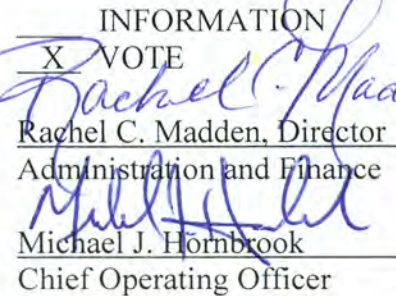 INFORMATION
X VOTE
Rachel C. Mad
Rachel C. Madden, Director
Administration and Finance
Michael J. Hornbrook
Chief Operating Officer